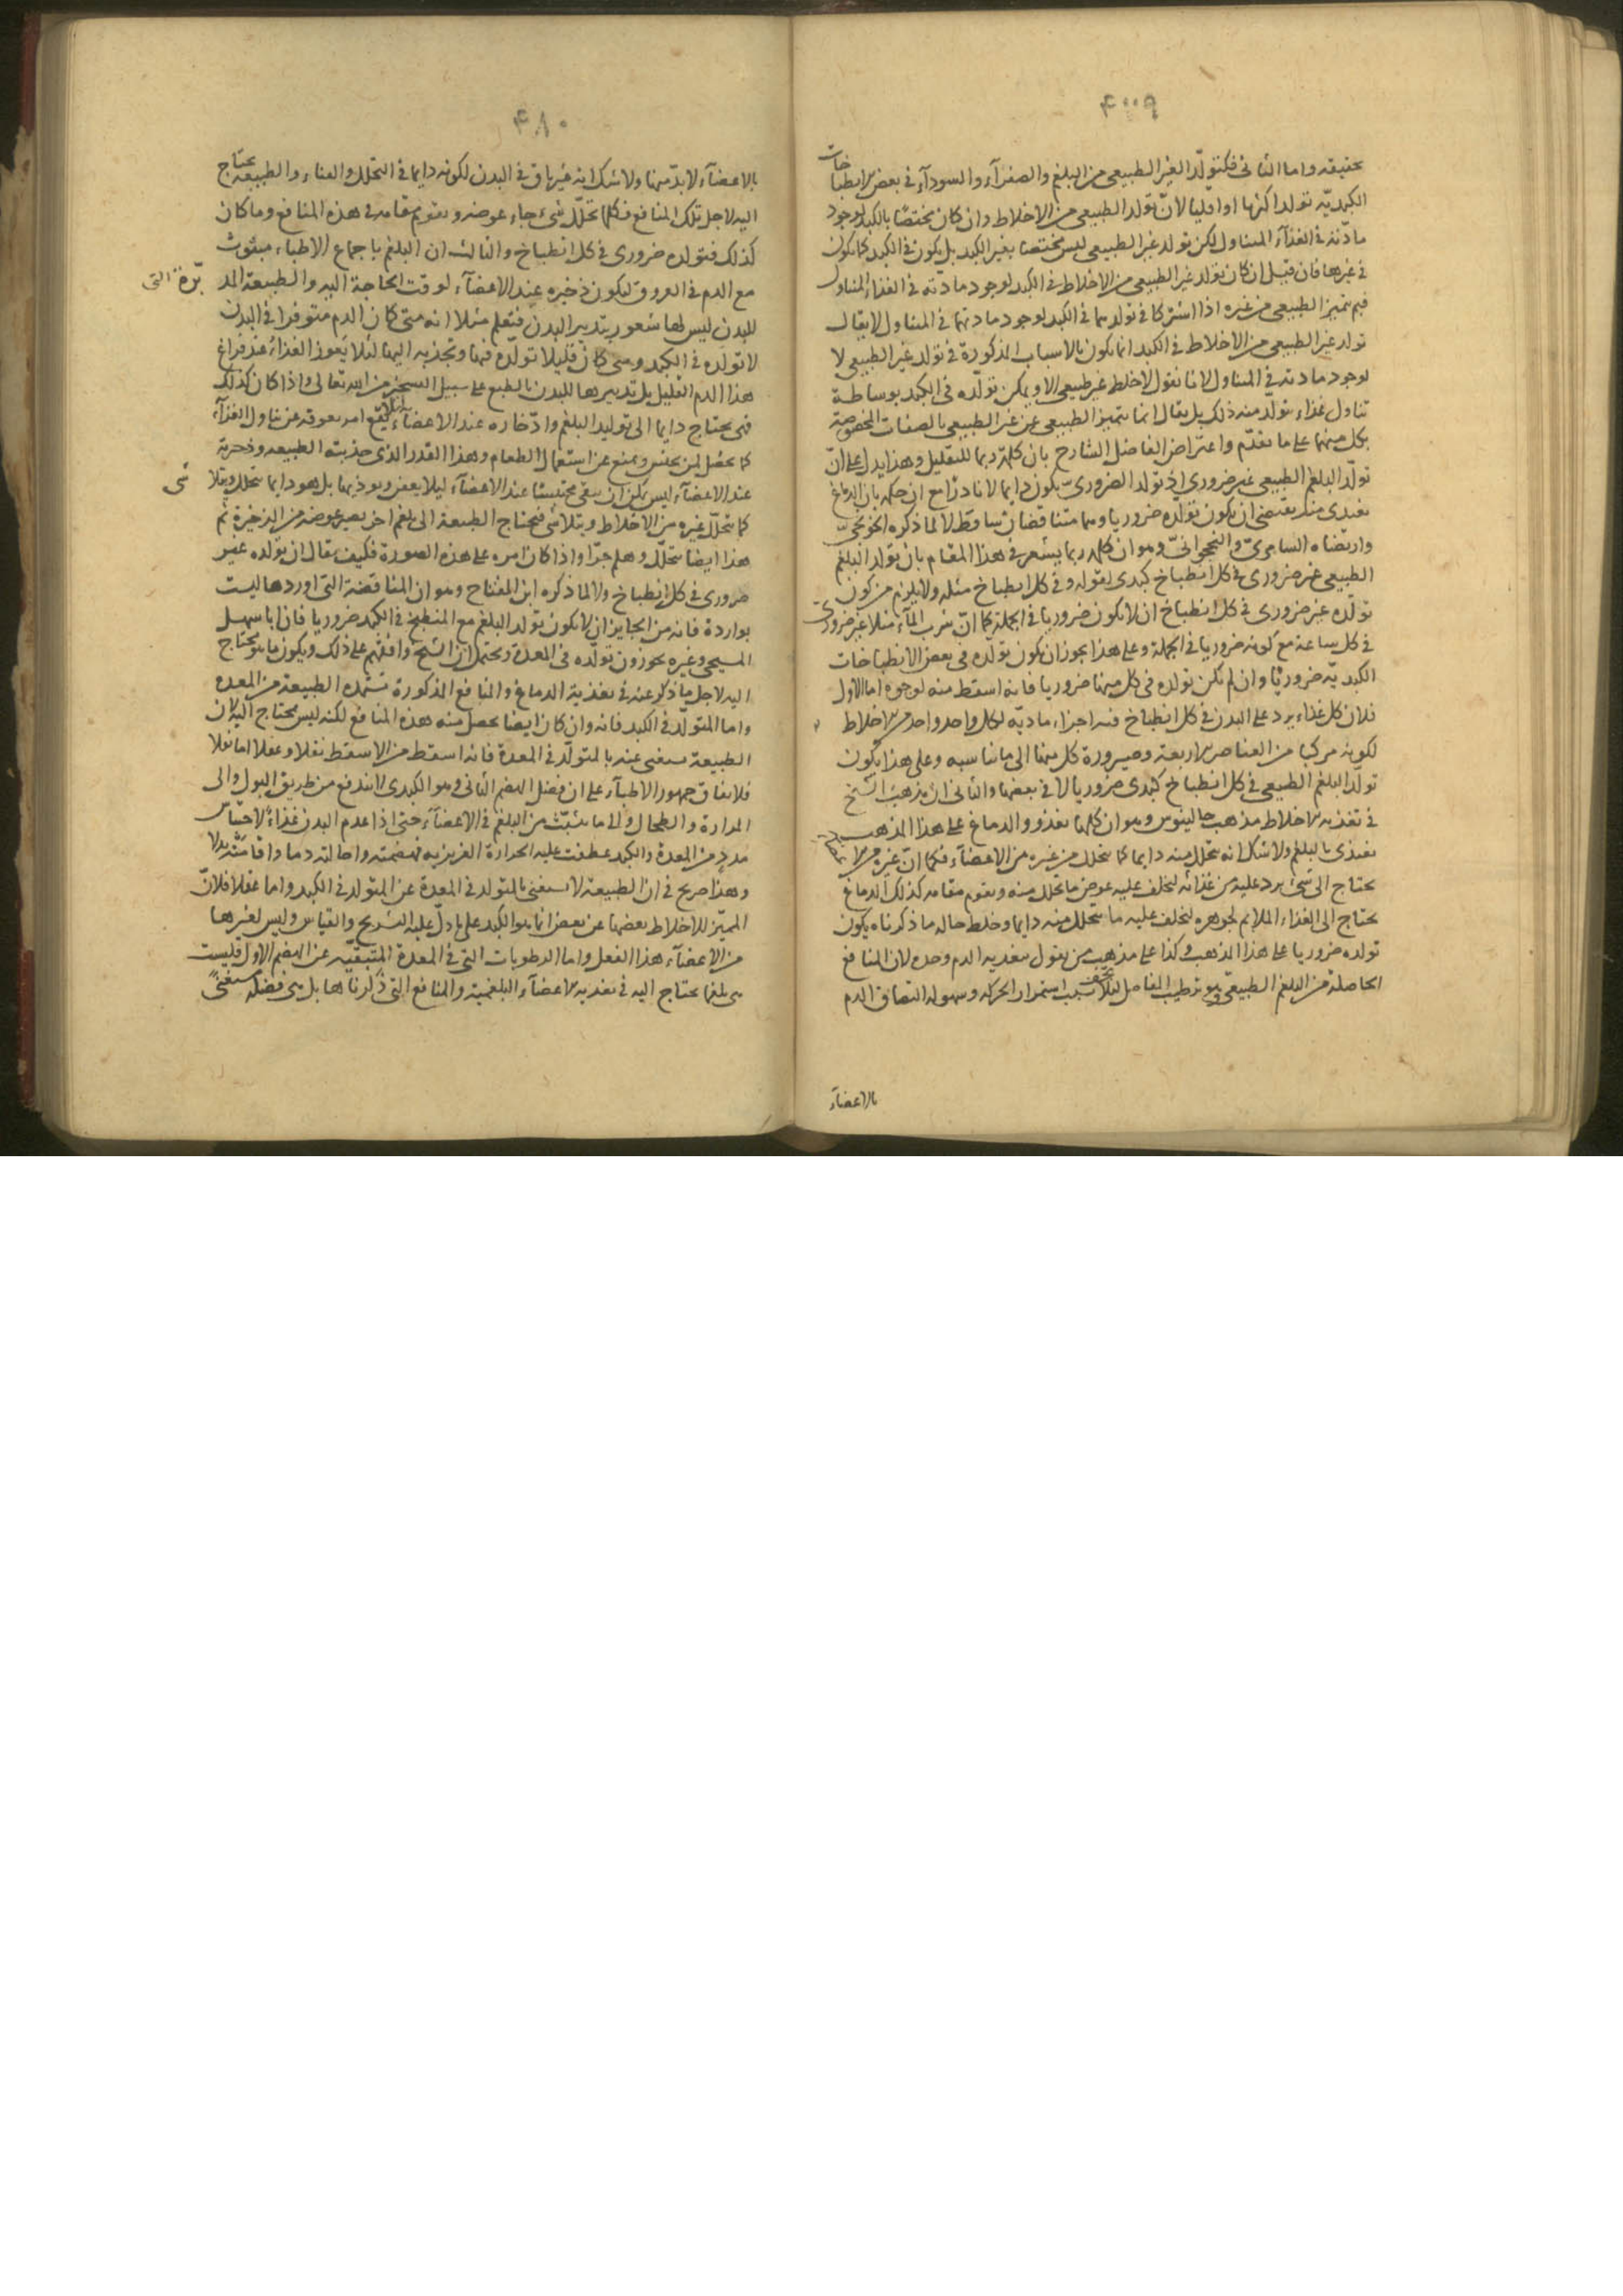 ۴۰۰۹
حقيقه واما الثانى فكتولّد الغير الطبيعى من البلغم والصفرآء والسودآء فى بعض الانطباخات
الكبديّه تولدا كثريا او اقليا لانّ تولد الطبيعى من الاخلاط وان كان مختصًا بالكبد لوجود
مادّته فى الغذآء المتناول لكن تولد غير الطبيعى ليس مختصا بغير الكبد بل يكون فى الكبد كما يكون
فى غيرها فان قيل ان كان تولد غير الطبيعى من الاخلاط فى الكبد لوجود مادته فى الغذاء المتناول
فبم يتميز الطبيعى من غيره اذا اشتركا فى تولدهما فى الكبد لوجود مادتهما فى المتناول لا يقال
تولد غير الطبيعى من الاخلاط فى الكبد انما يكون بالاسباب المذكورة فى تولد غير الطبيعى لا
لوجود مادته فى المتناول لانا نقول لا خلط غير طبيعى الا ويمكن تولّده فى الكبد بوساطة
تناول غذاء يتولّد منه ذلك بل يقال انما يتميز الطبيعى عن غير الطبيعى بالصفات المخصوصة
بكل منهما على ما تقدّم واعتراض الفاضل الشارح بان كلمة ربما للتقليل وهذا يدل على انّ
تولّد البلغم الطبيعى غير ضرورى اذ تولد الضرورىّ يكون دايما لا نادرًا مع ان حكمه بان الدماغ
يغتدى منه يقتضى ان يكون تولّده ضروريا وهما متناقضان ساقط لا لما ذكره الخونجىّ
وارتضاه السامرىّ والنخجوانىّ وهو ان كلمة ربما يشعر فى هذا المقام بان تولد البلغم
الطبيعى غير ضرورى فى كل انطباخ كبدى لقوله وفى كل انطباخ مثله ولا يلزم من كون
تولّده غير ضرورى فى كل انطباخ ان لا يكون ضروريا فى الجملة كما انّ شرب المآء مثلا غير ضرورىّ
فى كل ساعة مع كونه ضروريا فى الجملة وعلى هذا يجوز ان يكون تولّده فى بعض الانطباخات
الكبديّه ضروريًا وان لم يكن تولده فى كل منها ضروريا فانه اسقط منه لوجوه اما الاول
فلان كل غذاء يرد على البدن فى كل انطباخ فيه اجزاء ماديّه لكل واحد واحد من الاخلاط
لكونه مركبا من العناصر الاربعة وصيرورة كل منها الى ما يناسبه وعلى هذا يكون
تولّد البلغم الطبيعى فى كل انطباخ كبدى ضروريا لا فى بعضها والثانى ان مذهب الشيخ
فى تغذية الاخلاط مذهب جالينوس وهو ان كلها تغذو والدماغ على هذا المذهب
يغتذى بالبلغم ولا شك انه يتحلل منه دايما كما يتحلل من غيره من الاعضآء فكما انّ غيره من الاعضاء
يحتاج الى شئ يرد عليه من غذائه ليخلف عليه عوض ما تحلل منه ويقوم مقامه كذلك الدماغ
يحتاج الى الغذاء الملايم لجوهره ليخلف عليه ما يتحلل منه دايما وخلط حاله ما ذكرناه يكون
تولده ضروريا على هذا المذهب وكذا على مذهب من يقول بتغذية الدم وحده لان المنافع
الحاصلة من البلغم الطبيعى وهو ترطيب المفاصل لئلا تجف بسبب استمرار الحركه وسهولة التصاق الدم
بالاعضآء
۴۸۰
بالاعضآء لا بدّ منها ولا شك انه غير باق فى البدن لكونه دايما فى التحلل والفناء والطبيعة تحتاج
اليه لاجل تلك المنافع فكلما تحلّل شئ جاء عوضه ويقوم مقامه فى هذه المنافع وما كان
كذلك فتولده ضرورى فى كل انطباخ والثالث ان البلغم باجماع الاطباء مبثوث
مع الدم فى العروق ليكون ذخيره عند الاعضآء لوقت الحاجة اليه والطبيعة المدبّرة التى
للبدن ليس لها شعور بتدبير البدن فتعلم مثلا انه متى كان الدم متوفرا فى البدن
لا تولده فى الكبد ومتى كان قليلا تولّده فيها وتجذبه اليها لئلا يعوز الغذاء عند فراغ
هذا الدم القليل بل تدبيرها للبدن بالطبع على سبيل التسخير من الله تعالى واذا كان كذلك
فهى يحتاج دايما الى توليد البلغم وادّخاره عند الاعضآء لئلا يقع امر يعوقه عن تناول الغذآء
كما يحصل لمن يحبس ويمنع عن استعمال الطعام وهذا القدر الذى جذبته الطبيعه وذخرته
عند الاعضآء ليس يمكن ان يبقى محتبسًا عند الاعضآء ليلا يعفن ويوذيها بل هو دايما يتحلل ويتلاشى
كما يتحلّل غيره من الاخلاط ويتلاشى فيحتاج الطبيعة الى بلغم اخر يصير عوضه من الذخيرة ثم
هذا ايضا يتحلّل وهلم جرّا واذا كان امره على هذه الصورة فكيف يقال ان تولّده غير
ضرورى فى كل انطباخ ولا لما ذكره ابن المفتاح وهو ان المناقضة التى اوردها ليست
بواردة فانه من الجايز ان لا يكون تولد البلغم مع المنطبخ فى الكبد ضروريا فان ابا سهل
المسيحى وغيره يجوزون تولّده فى المعدة ويحتمل ان الشيخ وافقهم على ذلك ويكون ما يحتاج
اليه لاجل ما ذكر عنه فى تغذية الدماغ والمنافع المذكورة تستمده الطبيعة من المعده
واما المتولّد فى الكبد فانه وان كان ايضا يحصل منه هذه المنافع لكنه ليس يحتاج اليه لان
الطبيعة يستغنى عنه بالمتولّد فى المعدة فانه اسقط من الاسقط نقلا وعقلا اما نقلا
فلاتفاق جمهور الاطبآء على ان فضل الهضم الثانى وهو الكبدى لا يندفع من طريق البول والى
المرارة والطحال والى ما ينبثّ من البلغم فى الاعضآء حتى اذا عدم البدن غذاءً لاحتباس
مدد من المعدة والكبد عطفت عليه الحرارة الغريزيه فهضمته واحالته دما واقامته بدلا
وهذا صريح فى ان الطبيعة لا يستغنى بالمتولد فى المعدة عن المتولد فى الكبد واما عقلا فلانّ
المميّز للاخلاط بعضها عن بعض انما هو الكبد على ما دلّ عليه التشريح والقياس وليس لغيرها
من الاعضآء هذا الفعل واما الرطوبات التى فى المعدة المتبقيّه عن الهضم الاول فليست
هى بلغما يحتاج اليه فى تغذية الاعضآء البلغمية والمنافع التى ذكرناها بل هى فضلة يستغنىً